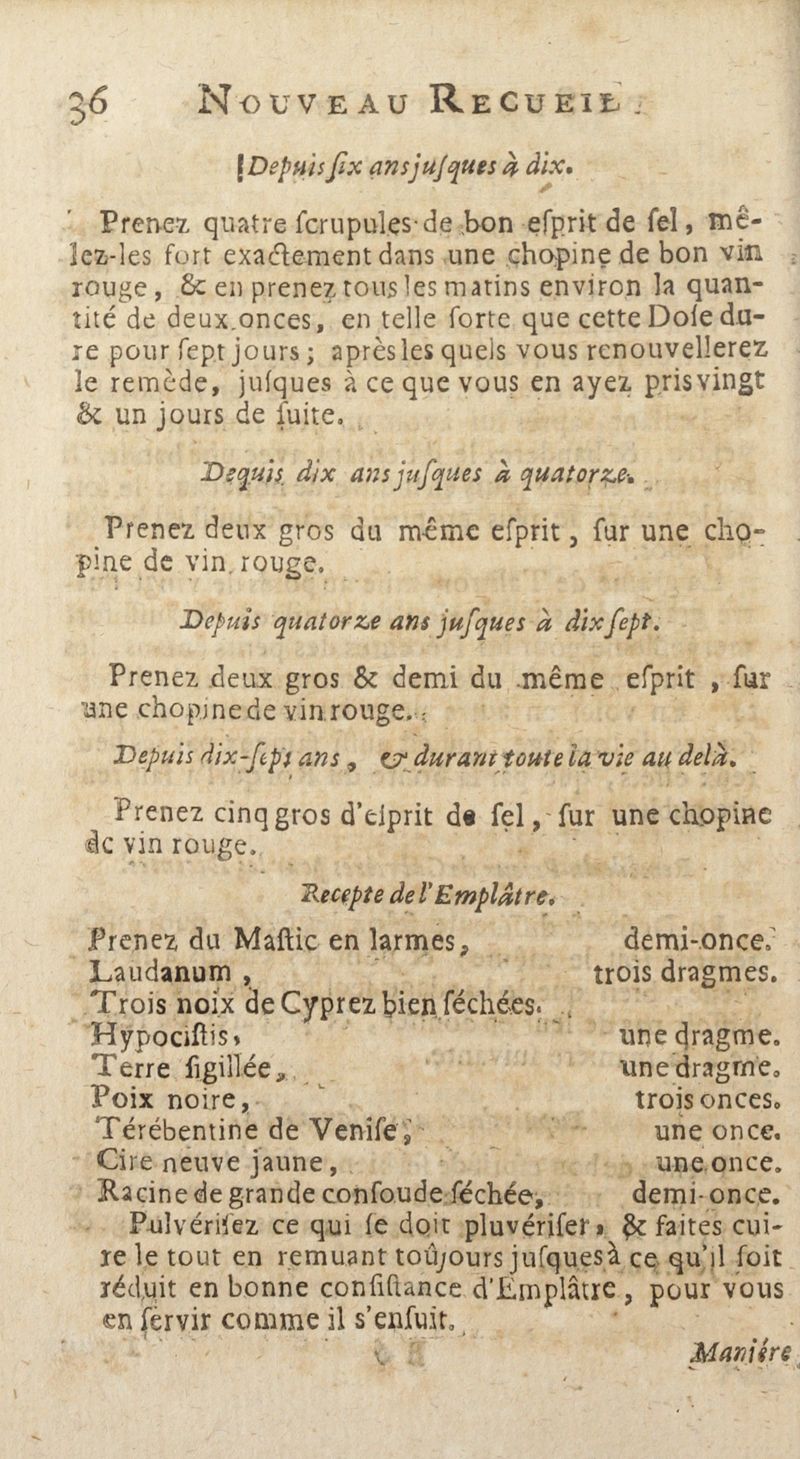 36 NOUVEAU RECUEIL.
Depuis ſix ans juſques à dix.
Prenez quatre ſcrupules de bon eſprit de ſel, mê-
lez-les fort exactement dans une chopine de bon vin
rouge, & en prenez tous les matins environ la quan-
tité de deux onces, en telle ſorte que cette Doſe du-
re pour ſept jours; après les quels vous renouvellerez
le remède, juſques à ce que vous en ayez pris vingt
& un jours de ſuite.
Dequis dix ans juſques à quatorze.
Prenez deux gros du même eſprit, ſur une cho-
pine de vin rouge.
Depuis quatorze ans juſques à dix ſept.
Prenez deux gros & demi du même eſprit, ſur
une chopine de vin rouge.
Depuis dix-ſept ans, & durant toute la vie au delà.
Prenez cinq gros d'eſprit de ſel, ſur une chopine
de vin rouge.
Recepte de l'Emplâtre.
Prenez du Maſtic en larmes, demi-once.
Laudanum, trois dragmes.
Trois noix de Cyprez bien ſéchées.
Hypociſtis, une dragme.
Terre ſigillée, une dragme.
Poix noire, trois onces.
Térébentine de Veniſe, une once.
Cire neuve jaune, une once.
Racine de grande conſoude ſéchée, demi-once.
Pulvériſez ce qui ſe doit pluvériſer, & faites cui-
re le tout en remuant toûjours juſques à ce qu'il ſoit
réduit en bonne conſiſtance d'Emplâtre, pour vous
en ſervir comme il s'enſuit.
Maniére